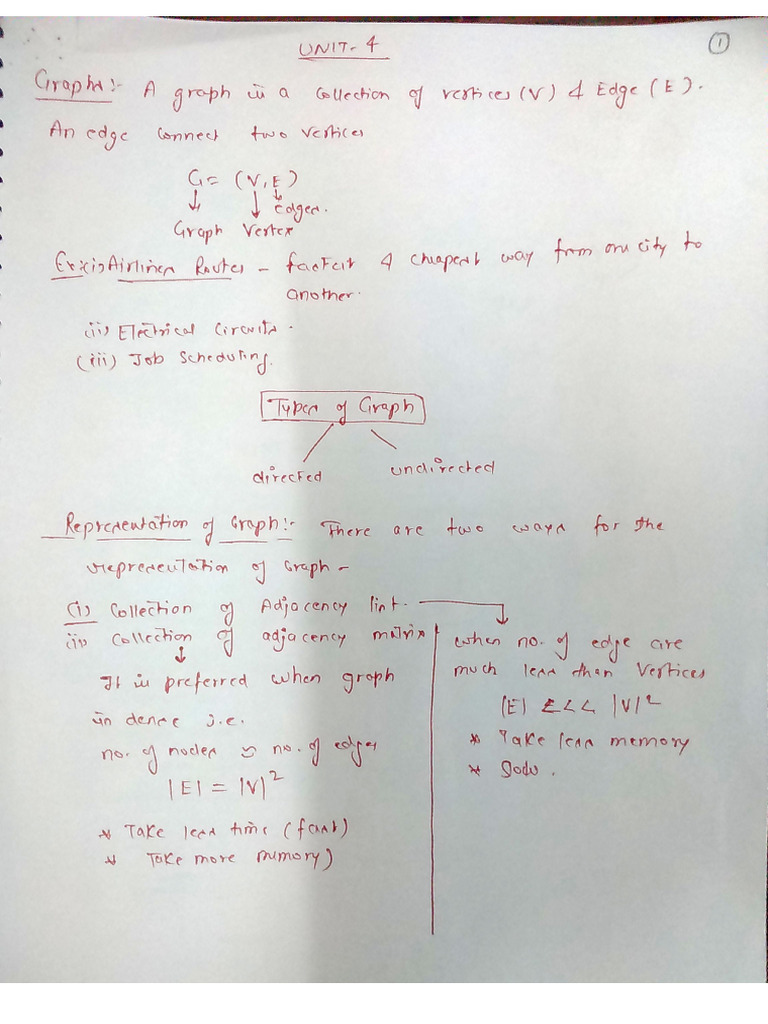 UNIT-4
1
Graphs:- A graph is a collection of vertices (V) & Edge (E).
An edge connect two vertices
G = (V, E)
↓ ↓ ↓
edges.
Graph Vertex
Ex:(i) Airlines Routes - fastest & cheapest way from one city to
another.
(ii) Electrical Circuits.
(iii) Job Scheduling.
Types of Graph
directed undirected
Representation of Graph:- There are two ways for the
representation of Graph -
(i) Collection of Adjacency list.
(ii) Collection of adjacency matrix
↓
It is preferred when graph
is dense i.e.
no. of nodes ≈ no. of edges
|E| = |V|²
* Take less time (fast)
* Take more memory)
when no. of edge are
much less than vertices
|E| <<< |V|²
* Take less memory
* Slow.